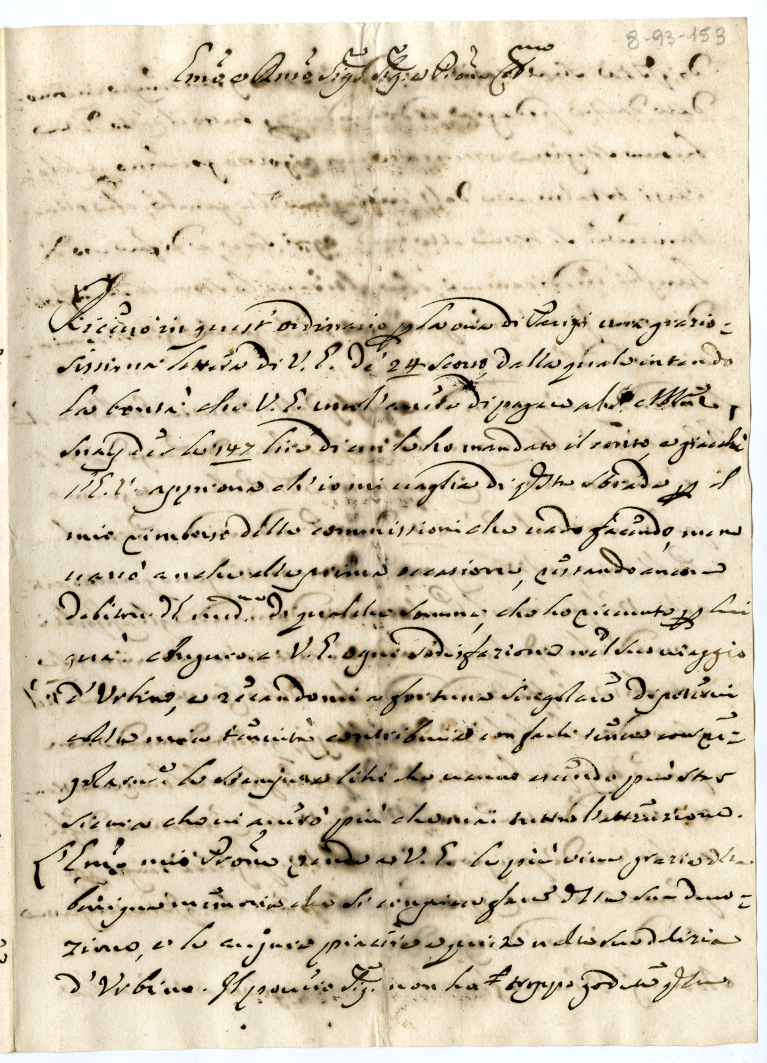 8-93-153
Em.o e Rmo Sig.r Sig.r e Pron Col.mo
Riceuo in quest'ordinario p la uia di Parigi una grazio-
sissima lettera di V. E. de 24 scorso, dalla quale intendo
la bontà che V. E. uuol' auere di pagare al Sr. Abbate
le 147 lire di cui le ho mandato il conto, e giacche
l'E. V. approua ch'io mi uaglia di qsta strada p il
mio rimborso delle commissioni che uado facendo, me ne
uarrò anche alle prime occasioni, restando ancora
debitore di qualche somma, che ho riceuuto p lui
quà. Auguro a V. E. ogni sodisfazione nel suo uiaggio
d'Urbino, e recandomi a fortuna singolare di potermi
colla mia contribuire con farle tenere
le libri che uanno uscendo può star
sicura che ui aurò più che mai tutta l'attenzione.
L'Em.o mio Prone rende a V. E. le più uiue grazie della
benigna memoria che si compiace fare della sua deuo-
zione, e le augura piacere e quiete nelle sue delizie
d'Urbino. Il pouero Sig.r non ha troppo godute qste